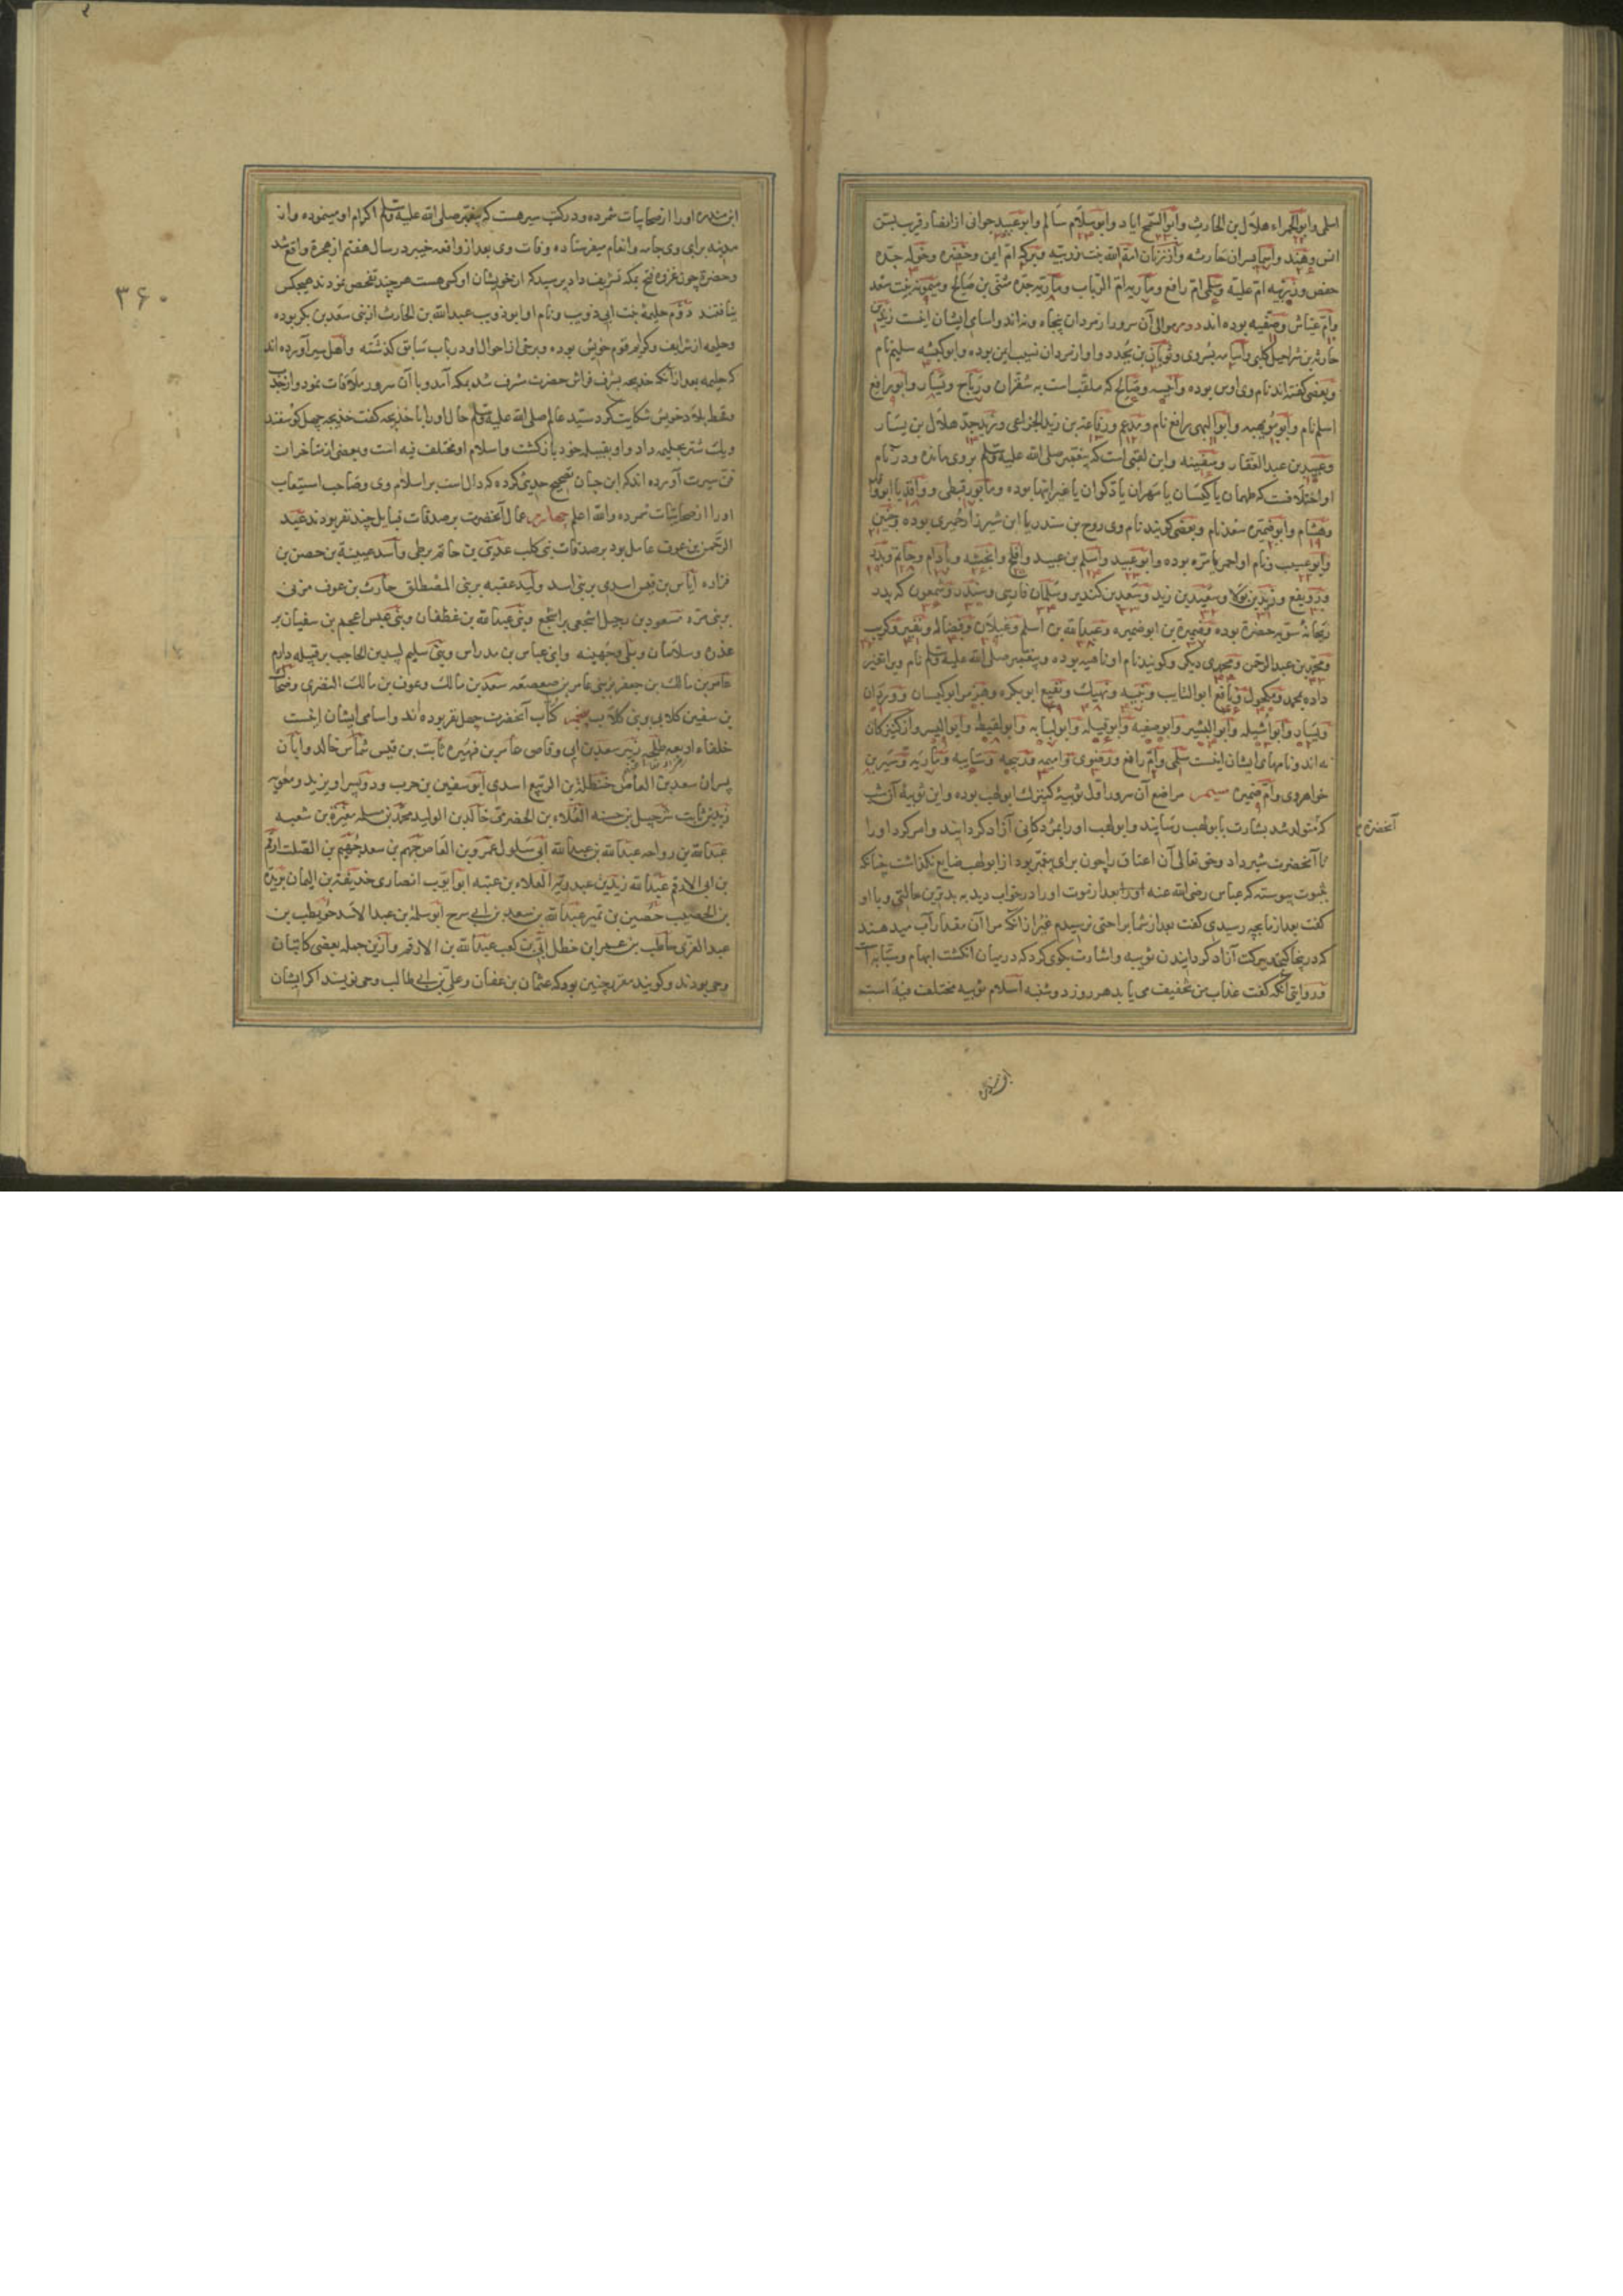 اسلمی وابو الحمراء هلال بن الحارث وابو السمح ایاد وابو سلام سالم وابو عبید جوانی از انصار قریب بسن
انس وهند واسما پسران حارثه واز زنان امة الله بنت رزینه وبرکه ام ایمن وخضره وخوله جده
حفص ورزینه ام علیه وسلمی ام رافع وماریه ام الرباب وماریه جده مثنی بن صالح ومیمونه بنت سعد
وام عیاش وصفیه بوده اند دوم موالی آن سرور از مردان پنجاه ونه اند واسامی ایشان اینست زید بن
حارثه بن شراحیل کلبی واسامه پسر وی وثوبان بن بجدد واو از مردان نسب یمن بوده وابو کبشه سلیم نام
وبعضی گفته اند نام وی اوس بوده وانیسه وصالح که ملقب است به شقران ورباح ویسار وابو رافع
اسلم نام وابو مویهبه وابو البهی رافع نام ومدعم ورفاعة بن زید الجزاعی وزید جد هلال بن یسار
وعبید بن عبد الغفار وسفینه واین لقبی است که پیغمبر صلی الله علیه وسلم بر وی مانده ودر نام
او اختلافست که طهمان یا کیسان یا مهران یا ذکوان یا غیر اینها بوده ومابور قبطی وواقد یا ابو واقد
وهشام وابو ضمیره سعد نام وبعضی گویند نام وی روح بن سندر یا ابن شیرزاد حمیری بوده وحنین
وابو عسیب ونام او احمر یا مره بوده وابو عبید واسلم بن عبید وافلح وانجشه وباذام وحاتم وبدر
ورویفع وزید بن بولا وسعید بن زید وسعد بن کندیر وسلمان فارسی وسندر وشمعون که پدر
ریحانهٔ سریه حضرة بوده وضمیرة بن ابو ضمیره وعبد الله بن اسلم وغیلان وفضاله ونفیر وکریب
ومحمد بن عبد الرحمن ومحمدی دیگر وگویند نام او ناهیه بوده وپیغمبر صلی الله علیه وسلم نام ویرا تغییر
داده محمد ومکحول ونافع ابو السایب ونبیه ونهیک ونفیع ابو بکره وهرمز ابو کیسان ووردان
ویسار وابو اثیله وابو البشیر وابو صفیه وابو قیله وابو لبابه وابو لقیط وابو الیسر واز کنیزکان
نه اند ونامهای ایشان اینست سلمی وام رافع ورضوی وامیمه وربیحه وسایبه وماریه وشیرین
خواهر وی وام ضمیره سیم مراضع آن سرور اول ثویبه کنیزک ابو لهب بوده واین ثویبه آن شب
که متولد شد بشارت بابو لهب رسانید وابو لهب اورا بمژدگانی آزاد گردانید وامر کرد اورا
آنحضرة
تا آنحضرت شیر داد وحق تعالی آن اعتاق را چون برای پیغمبر بود از ابو لهب ضایع نگذاشت چنانکه
بثبوت پیوسته که عباس رضی الله عنه اورا بعد از فوت او را در خواب دید به بدترین حالتی وبا او
گفت بعد از ما بچه رسیدی گفت بعد از شما براحتی نرسیدم غیر از آنکه مرا آن مقدار آب میدهند
که در نجا گنجد ببرکت آزاد گردانیدن ثویبه واشارت بگوی کرد که در میان انگشت ابهام وسبابه است
ودر روایتی آنکه گفت عذاب من تخفیف می یابد هر روز دوشنبه اسلام ثویبه مختلف فیه است
ابن منده
۳۶۰
ابن منده اورا از صحابیات شمرده ودر کتب سیر هست که پیغمبر صلی الله علیه وسلم اکرام او مینموده واز
مدینه برای وی جامه وانعام میفرستاده وفات وی بعد از واقعه خیبر در سال هفتم از هجرة واقع شد
وحضرة چون غزوه فتح بمکه تشریف داد پرسید که از خویشان او کس هست هر چند تفحص نمودند هیچکس
نیافتند دوم حلیمه بنت ابی ذویب ونام او ابو ذویب عبد الله بن الحارث از بنی سعد بن بکر بوده
وحلیمه از شرایف وکرایم قوم خویش بوده وبرخی از احوال او در باب سابق گذشته واهل سیر آورده اند
که حلیمه بعد از آنکه خدیجه بشرف فراش حضرت مشرف شد بمکه آمد وبا آن سرور ملاقات نمود واز جدب
وقحط بلاد خویش شکایت کرد سید عالم صلی الله علیه وسلم حال اورا با خدیجه گفت خدیجه چهل گوسفند
ویک شتر بحلیمه داد واو بقبیله خود باز گشت واسلام او مختلف فیه است وبعضی از متأخران
فن سیرت آورده اند که ابن حبان تصحیح حدیثی کرده که دال است بر اسلام وی وصاحب استیعاب
اورا از صحابیات شمرده والله اعلم چهارم عمال آنحضرت بر صدقات قبایل چند نفر بودند عبد
الرحمن بن عوف عامل بود بر صدقات بنی کلب عدی بن حاتم بر طی واسد عیینة بن حصن بن
فزاره ایاس بن قیس اسدی بر بنی اسد ولید عقبه بر بنی المصطلق حارث بن عوف مزنی
بر بنی مره مسعود بن رجیل اشجعی بر اشجع وبنی عبد الله بن غطفان وبنی عبس اعجم بن سفیان بر
عذره وسلامان وبلی وجهینه وابی عباس بن مرداس وبنی سلیم لبید بن الحاجب بر قبیله دارم
عامر بن مالک بن جعفر بر بنی عامر بن صعصعه سعد بن مالک وعوف بن مالک النضری وضحاک
بن سفین کلابی وبنی کلاب پنجم کتاب آنحضرت چهل نفر بوده اند واسامی ایشان اینست
خلفاء اربعه طلحه زبیر سعد بن ابی وقاص عامر بن فهیره ثابت بن قیس شماس خالد وابان
پسران سعد بن العاص حنظلة بن الربیع اسدی ابو سفین بن حرب ودو پسر او یزید ومعویه
زید بن ثابت شرحبیل بن حسنه العلاء بن الحضرمی خالد بن الولید محمد بن مسلمه مغیرة بن شعبه
عبد الله بن رواحه عبد الله بن عبد الله ابی سلول عمرو بن العاص جهم بن سعد جهیم بن الصلت ارقم
بن ابی الارقم عبد الله زید بن عبد ربه العلاء بن عتبه ابو ایوب انصاری حذیفة بن الیمان بریدة
بن الحصیب حصین بن نمیر عبد الله بن سعد بن ابی سرح ابو سلمة بن عبد الاسد حویطب بن
عبد العزی حاطب بن عمرو ابن خطل ابی بن کعب عبد الله بن الارقم واز این جمله بعضی کاتبان
وحی بودند وگویند مقرر چنین بود که عثمان بن عفان وعلی بن ابی طالب وحی نویسند اگر ایشان